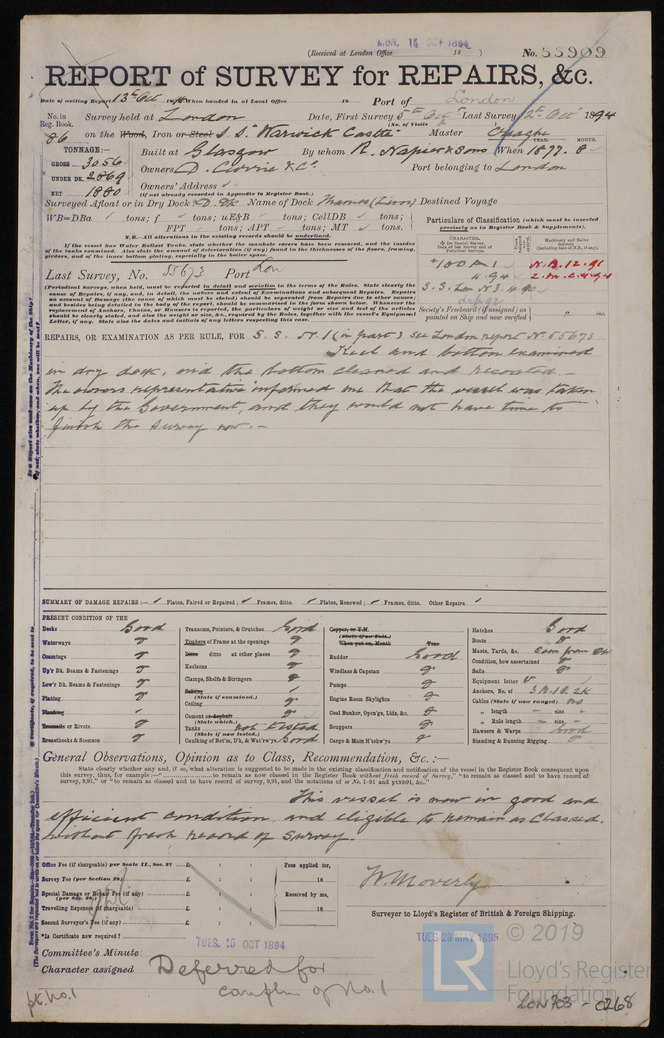 (Received at London Office MON. 15 OCT 1894 18 )
No. 55909
REPORT of SURVEY for REPAIRS, &c.
Date of writing Report 13th Oct 18 When handed in at Local Office 18 Port of London
No. in Reg. Book. 86
Survey held at London Date, First Survey 5th Oct Last Survey 12th Oct 1894
(No. of Visits )
on the Wood, Iron or Steel S.S. "Warwick Castle" Master
TONNAGE:—
GROSS 3056
UNDER DK. 2869
NET 1880
Built at Glasgow By whom R. Napier & Sons When 1877. 8
YEAR. MONTH.
Owners D. Currie & Co. Port belonging to London
Owners' Address
(If not already recorded in Appendix to Register Book.)
Surveyed Afloat or in Dry Dock D. Dk Name of Dock Thames Destined Voyage
WB=DBa tons; f tons; uE&B tons; CellDB tons;
FPT tons; APT tons; MT tons.
N.B.—All alterations in the existing records should be underlined.
If the vessel has Water Ballast Tanks, state whether the manhole covers have been removed, and the insides
of the tanks examined. Also state the amount of deterioration (if any) found in the thicknesses of the floors, framing,
girders, and of the inner bottom plating, especially in the boiler space.
Particulars of Classification (which must be inserted
precisely as in Register Book & Supplements).
CHARACTER,
+100 A 1
4.94
S.S. Lon No 3. 4.90
N.B. 12.91
Society's Freeboard (if assigned) as
painted on Ship and now verified ft. ins.
Last Survey, No. 55673 Port Lon
(Periodical Surveys, when held, must be reported in detail and seriatim in the terms of the Rules. State clearly the
cause of Repairs, if any, and, in detail, the nature and extent of Examinations and subsequent Repairs. Repairs
on account of Damage (the cause of which must be stated) should be separated from Repairs due to other causes;
and besides being detailed in the body of the report, should be summarized in the form shown below. Whenever the
replacement of Anchors, Chains, or Hawsers is reported, the particulars of weight or size and test of the articles
should be clearly stated, and also the weight or size, &c., required by the Rules, together with the vessel's Equipment
Letter, if any. State also the dates and initials of any letters respecting this case.
REPAIRS, OR EXAMINATION AS PER RULE, FOR S.S. No 1 (in part) See London report No. 55673
Keel and bottom examined
in dry dock, and the bottom cleaned and recoated.—
The owners representative informed me that the vessel was taken
up by the Government, and they would not have time to
finish the survey now.—
SUMMARY OF DAMAGE REPAIRS:— Plates, Faired or Repaired; Frames, ditto. Plates, Renewed; Frames, ditto. Other Repairs
PRESENT CONDITION OF THE
Decks Good
Waterways
Coamings
Up'r Dk. Beams & Fastenings
Low'r Dk. Beams & Fastenings
Plating
Planking
Treenails or Rivets
Breasthooks & Stemson
Transoms, Pointers, & Crutches Good
Timbers of Frame at the openings
Ditto ditto at other places
Keelsons
Clamps, Shelfs & Stringers
Salting
(State if examined.)
Ceiling
Cement or Asphalt
(State which.)
Tanks not tested
(State if now tested.)
Caulking of Bot'm, D'k, & Wat'rw'ys Good
Copper, or Y.M.
(State if on Felt.)
When put on, Month Year
Rudder Good
Windlass & Capstan
Pumps
Engine Room Skylights
Coal Bunker, Open'gs, Lids, &c.
Scuppers
Cargo & Main H'tchw'ys
Hatches Good
Boats
Masts, Yards, &c. Seen from Dk
Condition, how ascertained
Sails
Equipment letter
Anchors, No. of 3 B. 1 S. 2 K
Cables (State if now ranged) no
„ length size
„ Rule length size
Hawsers & Warps Good
Standing & Running Rigging
General Observations, Opinion as to Class, Recommendation, &c.:—
State clearly whether any, and if so, what alteration is suggested to be made in the existing classification and notification of the vessel in the Register Book consequent upon
this survey, thus, for example:—"to remain as now classed in the Register Book without fresh record of Survey," "to remain as classed and to have record of
survey, 9,91," or "to remain as classed and to have record of survey, 9,91, and the notations of ss No. 1-91 and ptND91, &c."
This vessel is now in good and
efficient condition and eligible to remain as Classed.
Without fresh record of Survey.
Office Fee (if chargeable) per Scale II., Sec. 27 £ : :
Survey Fee (per Section 28) £ : :
Special Damage or Repair Fee (if any) £ : :
(per Sec. 28.)
Travelling Expenses (if chargeable) £ : :
Second Surveyor's Fee (if any) £ : :
Fees applied for,
18
Received by me,
18
W. Moverly
Surveyor to Lloyd's Register of British & Foreign Shipping.
*Is Certificate now required?
Committee's Minute TUES. 16 OCT 1894
TUES 28 MAY 1895
Character assigned Deferred for
compln of No. 1
pt. No. 1
© 2019
LR
Lloyd's Register
Foundation
LON 703 - 0268